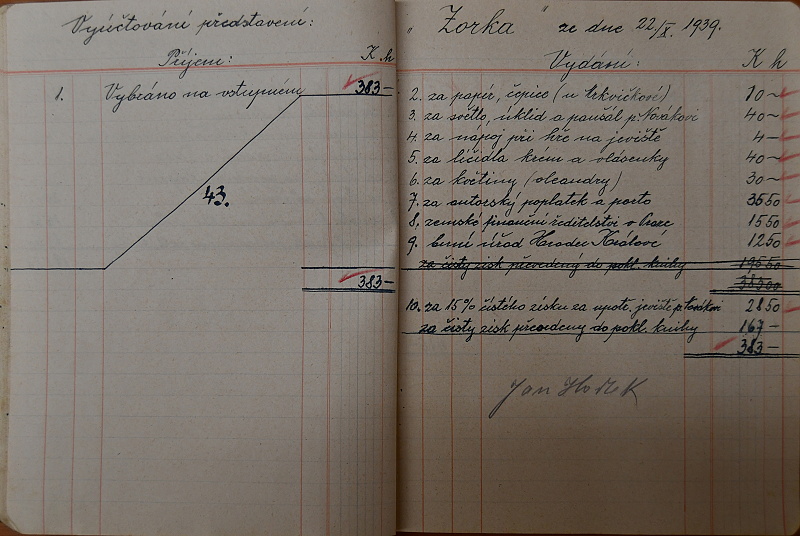 Vyúčtování představení:
Příjem: K h
1. Vybráno na vstupném 383-
43.
383-
"Zorka" ze dne 22./X. 1939.
Vydání: K h
2. za papír, čepice (u Trkvičkové) 10~
3. za světlo, úklid a paušál p. Novákovi 40~
4. za nápoj při hře na jeviště 4-
5. za líčidla krém a vlásenky 40~
6. za květiny (oleandry) 30~
7. za autorský poplatek a porto 35 50
8. zemské finanční ředitelství v Praze 15 50
9. berní úřad Hradec Králové 12 50
za čistý zisk převedený do pokl. knihy 195 50
383 00
10. za 15% čistého zisku za upotř. jeviště p. Novákovi 28 50
za čistý zisk převedený do pokl. knihy 167-
383-
Jan